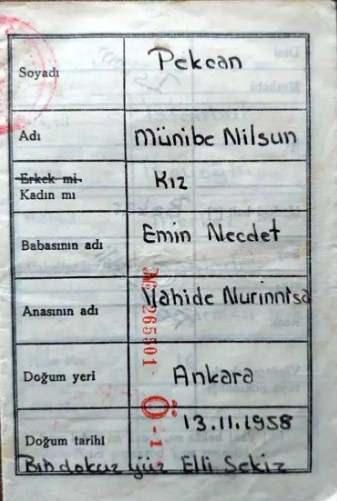 Soyadı Pekcan
Adı Münibe Nilsun
Erkek mi
Kadın mı Kız
Babasının adı Emin Necdet
Anasının adı Vahide Nurinnisa
№ 265501
Doğum yeri Ankara
Doğum tarihi 13.11.1958
Bindokuz yüz Elli Sekiz